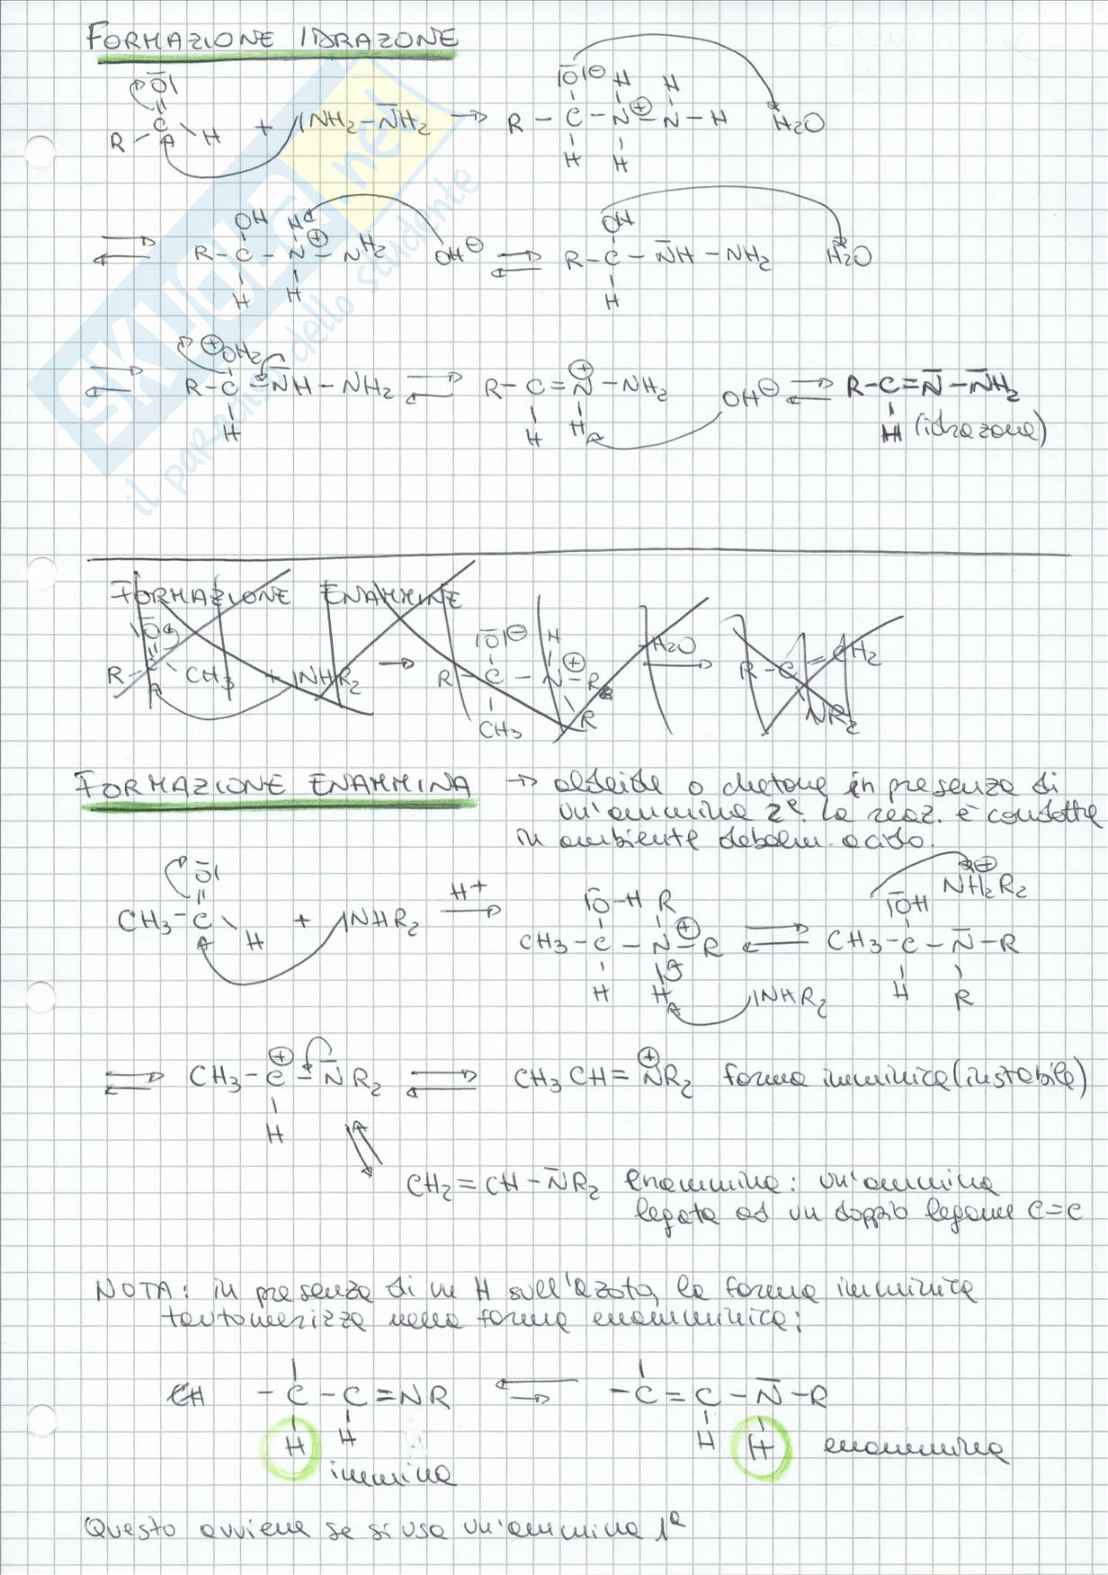 FORMAZIONE IDRAZONE
R - C - H + |NH2-NH2 → R - C - N⊕ - N - H H2O
⇌ R-C-N⊕-NH2 OH⊖ ⇌ R-C-NH-NH2 H2O
⇌ R-C-NH-NH2 ⇌ R-C=N⊕-NH2 OH⊖ ⇌ R-C=N-NH2
H (idrazone)
FORMAZIONE ENAMMINE
R-C-CH3 + |NHR2 → R-C-N⊕-R H2O → R-C=CH2
CH3 R NR2
FORMAZIONE ENAMMINA → aldeide o chetone in presenza di
un'ammina 2ª. La reaz. è condotta
in ambiente debolm. acido.
CH3-C-H + |NHR2 H+ → CH3-C-N⊕-R ⇌ CH3-C-N-R
H H |NHR2 H R
⇌ CH3-C⊕-NR2 ⇌ CH3CH=N⊕R2 forma imminica (instabile)
H
CH2=CH-NR2 enammina: un'ammina
legata ad un doppio legame C=C
NOTA: in presenza di un H sull'azoto, la forma imminica
tautomerizza nella forma enamminica:
CH -C-C=NR ⇌ -C=C-N-R
H H H H enammina
immina
Questo avviene se si usa un'ammina 1ª
SKUOLA.net
il portale dello studente